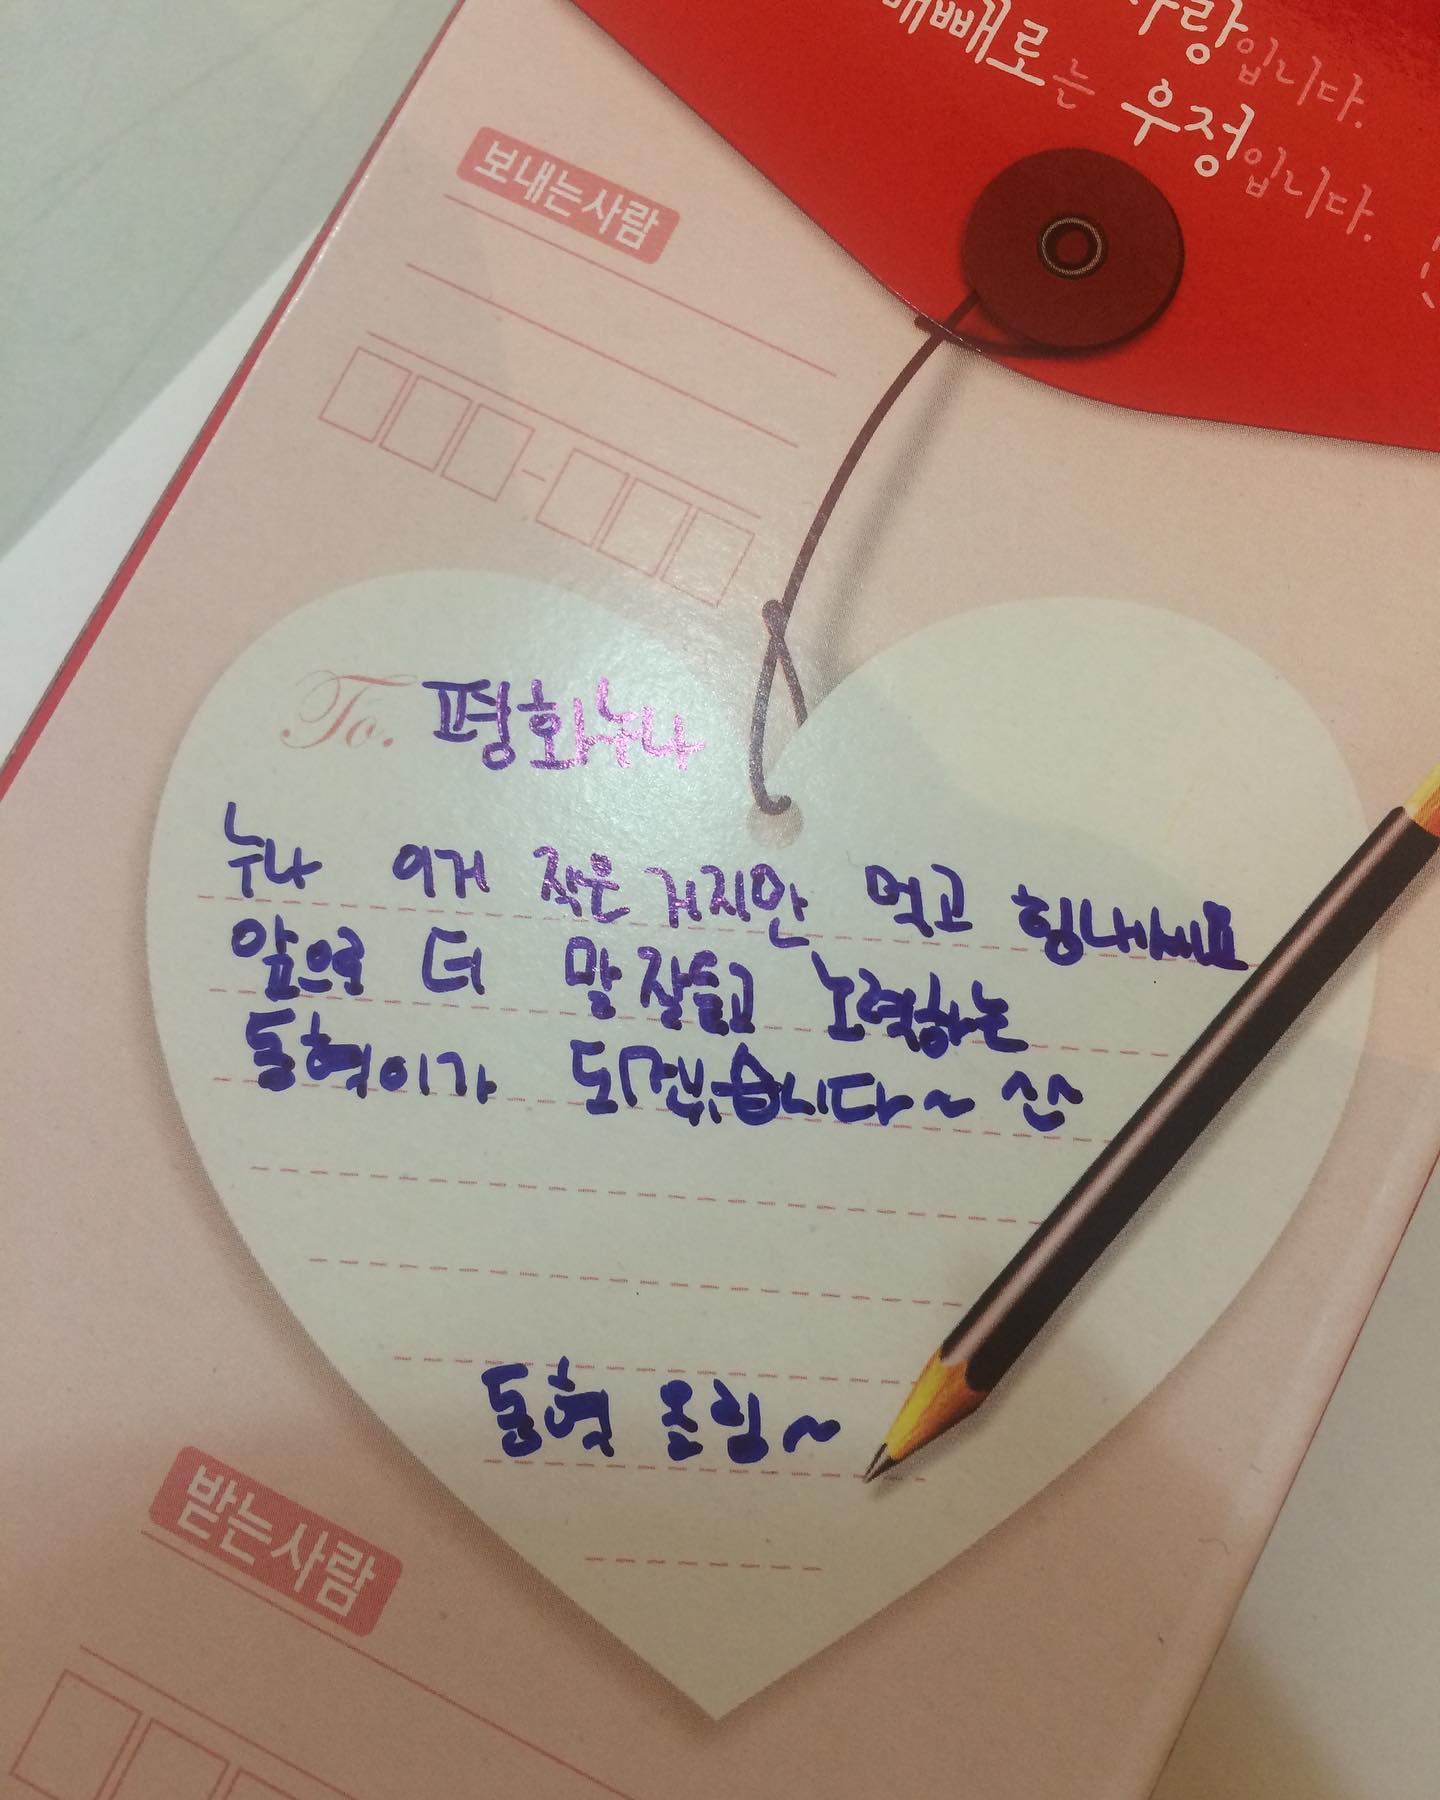 사랑입니다.
빼빼로는 우정입니다.
보내는사람
To. 평화누나
누나 이거 작은거지만 먹고 힘내세요
앞으로 더 말잘듣고 노력하는
동혁이가 되겠습니다~ ^^
동혁 올림~
받는사람